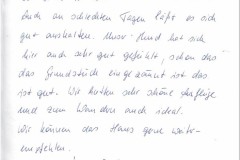 Auch an schlechten Tagen läßt es sich
gut aushalten. Unser Hund hat sich
hier auch sehr gut gefühlt, schon das
das Grundstück eingezäunt ist das
ist gut. Wir hatten sehr schöne
und zum Wandern auch ideal.
Wir können das Haus gerne weiter-
empfehlen.